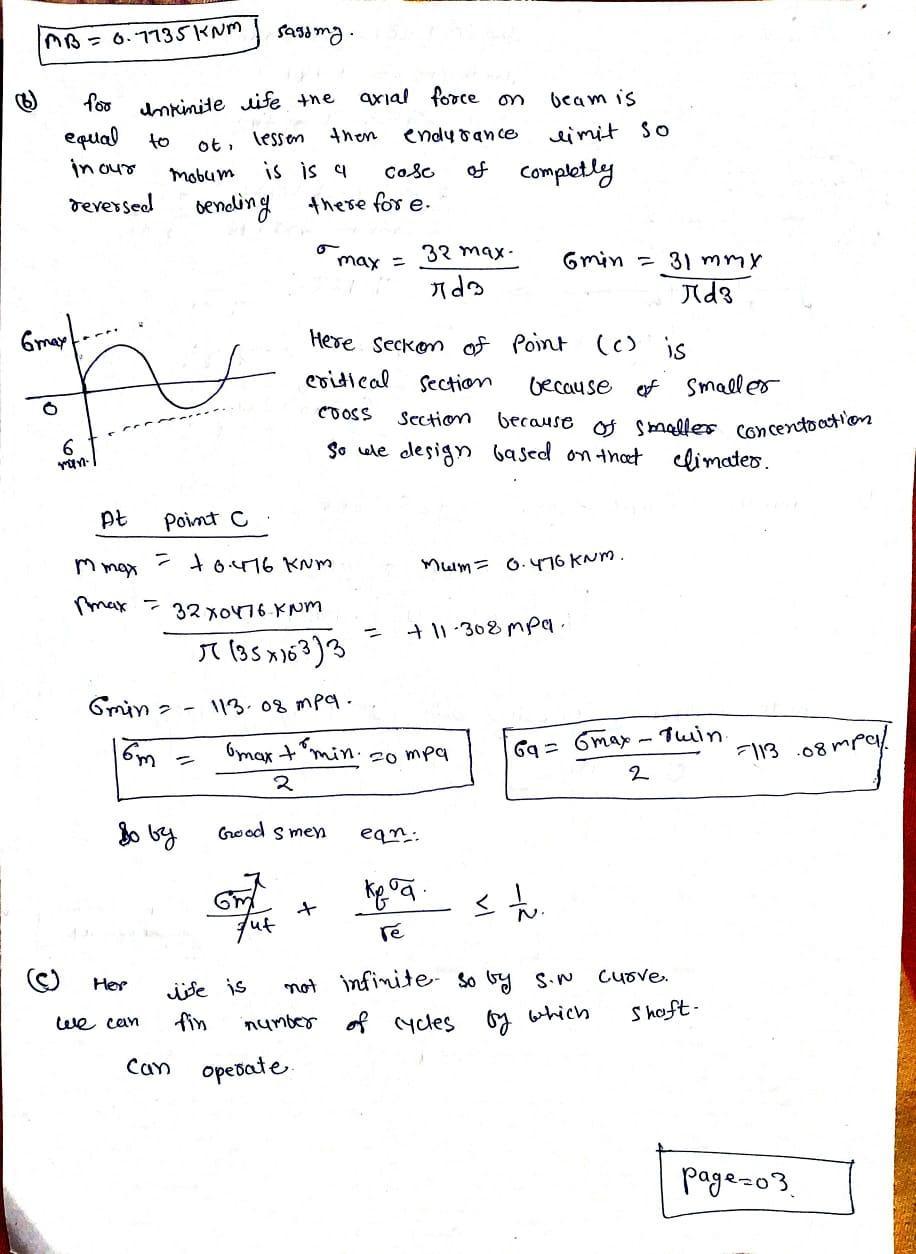 MB = 0.7735 KNM sagging.
(b) for unkinite life the axial force on beam is
equal to ot, lesson then endurance limit so
in our mobum is is a case of completly
reversed bending there fore.
σmax = 32 max. / πd3 σmin = 31 mmx / πd3
σmax
0
σ min.
Here seckon of Point (c) is
critical section because of smaller
cross section because of smaller concentration
So we design based on that climates.
At Point C
M max = + 0.476 KNM Mum = 0.476 KNM.
σmax = 32 x0476.KNM / π (35 x10^3)3 = + 11.308 mpa.
σmin = - 113.08 mpa.
σm = σmax + σmin. / 2 = 0 mpa
σa = σmax - σmin. / 2 = 113.08 mpa.
So by Good smen eqn:
σm / σut + Kf σa. / σe ≤ 1/N.
(c) Her life is not infinite- so by S.N curve.
we can fin number of cycles by which shaft-
can operate.
page=03.